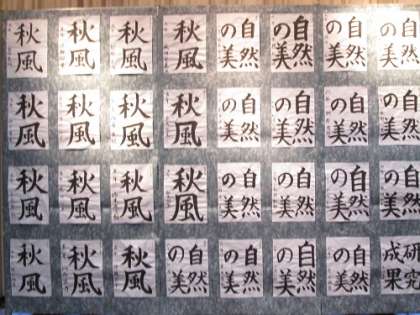 秋風
秋風
秋風
秋風
自然
の美
自然
の美
自然
の美
自然
の美
秋風
秋風
秋風
秋風
自然
の美
自然
の美
自然
の美
自然
の美
秋風
秋風
秋風
秋風
自然
の美
自然
の美
自然
の美
自然
の美
秋風
秋風
秋風
自然
の美
自然
の美
自然
の美
自然
の美
研究
成果